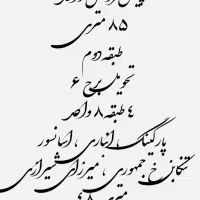 ۸۵ متری
طبقه دوم
تحویل برج ۶
۴ طبقه ۸ واحد
پارکینگ، انباری، آسانسور
تنکابن خ جمهوری، میرزای شیرازی